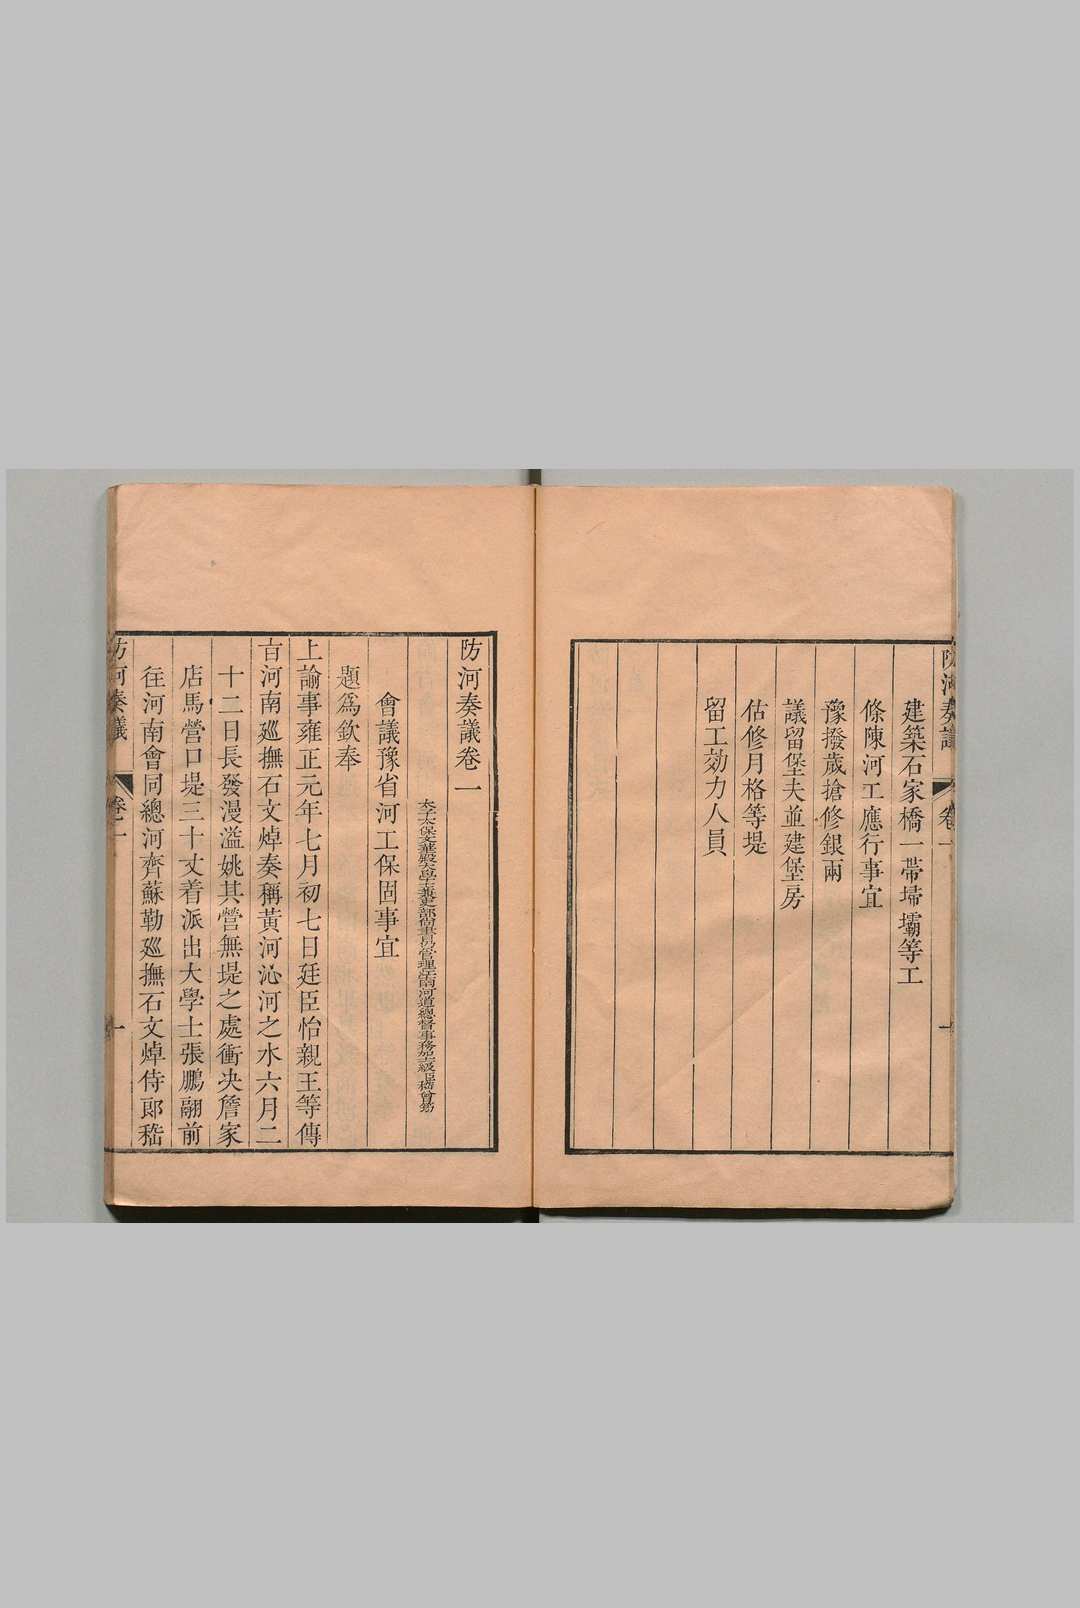 防河奏議 卷一
建築石家橋一帶埽壩等工
條陳河工應行事宜
豫撥歲搶修銀兩
議留堡夫並建堡房
估修月格等堤
留工効力人員
防河奏議卷一
太子太保文華殿大學士兼吏部尚書仍管理江南河道總督事務加三級臣嵇曾筠
會議豫省河工保固事宜
題爲欽奉
上諭事雍正元年七月初七日廷臣怡親王等傳
旨河南廵撫石文焯奏稱黃河沁河之水六月二
十二日長發漫溢姚其營無堤之處衝决詹家
店馬營口堤三十丈着派出大學士張鵬翮前
徃河南會同總河齊蘇勒廵撫石文焯侍郎嵇
防河奏議 卷一 一